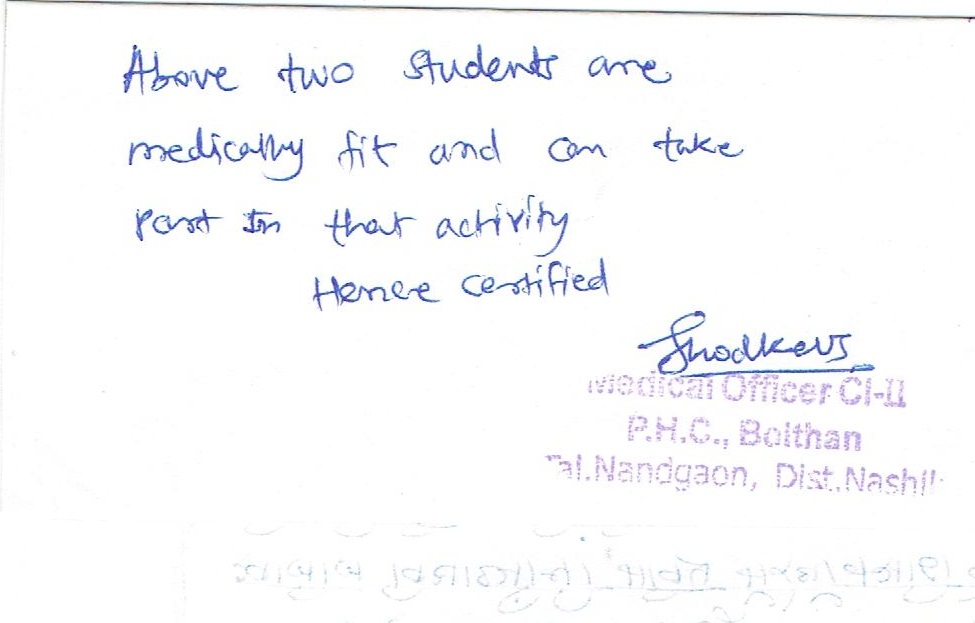 Above two students are
medically fit and can take
part In that activity
Hence certified
Medical Officer Cl-II
P.H.C., Bolthan
Tal.Nandgaon, Dist.Nashik